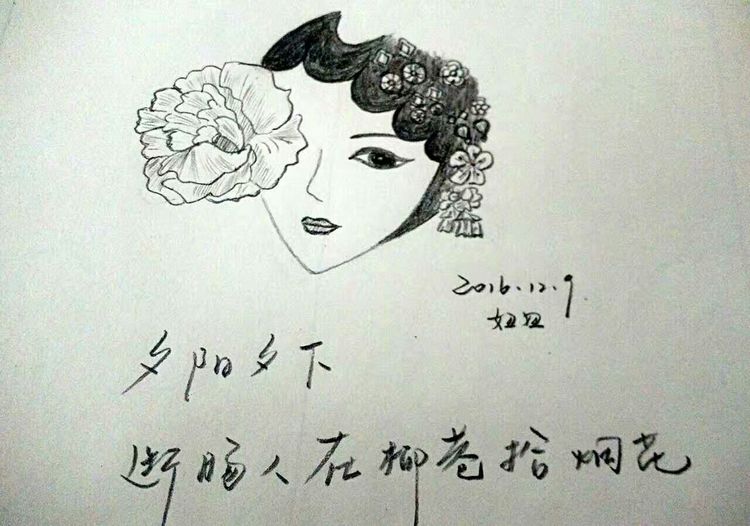 2016.12.9
妞妞
夕阳夕下
断肠人在柳巷拾烟花